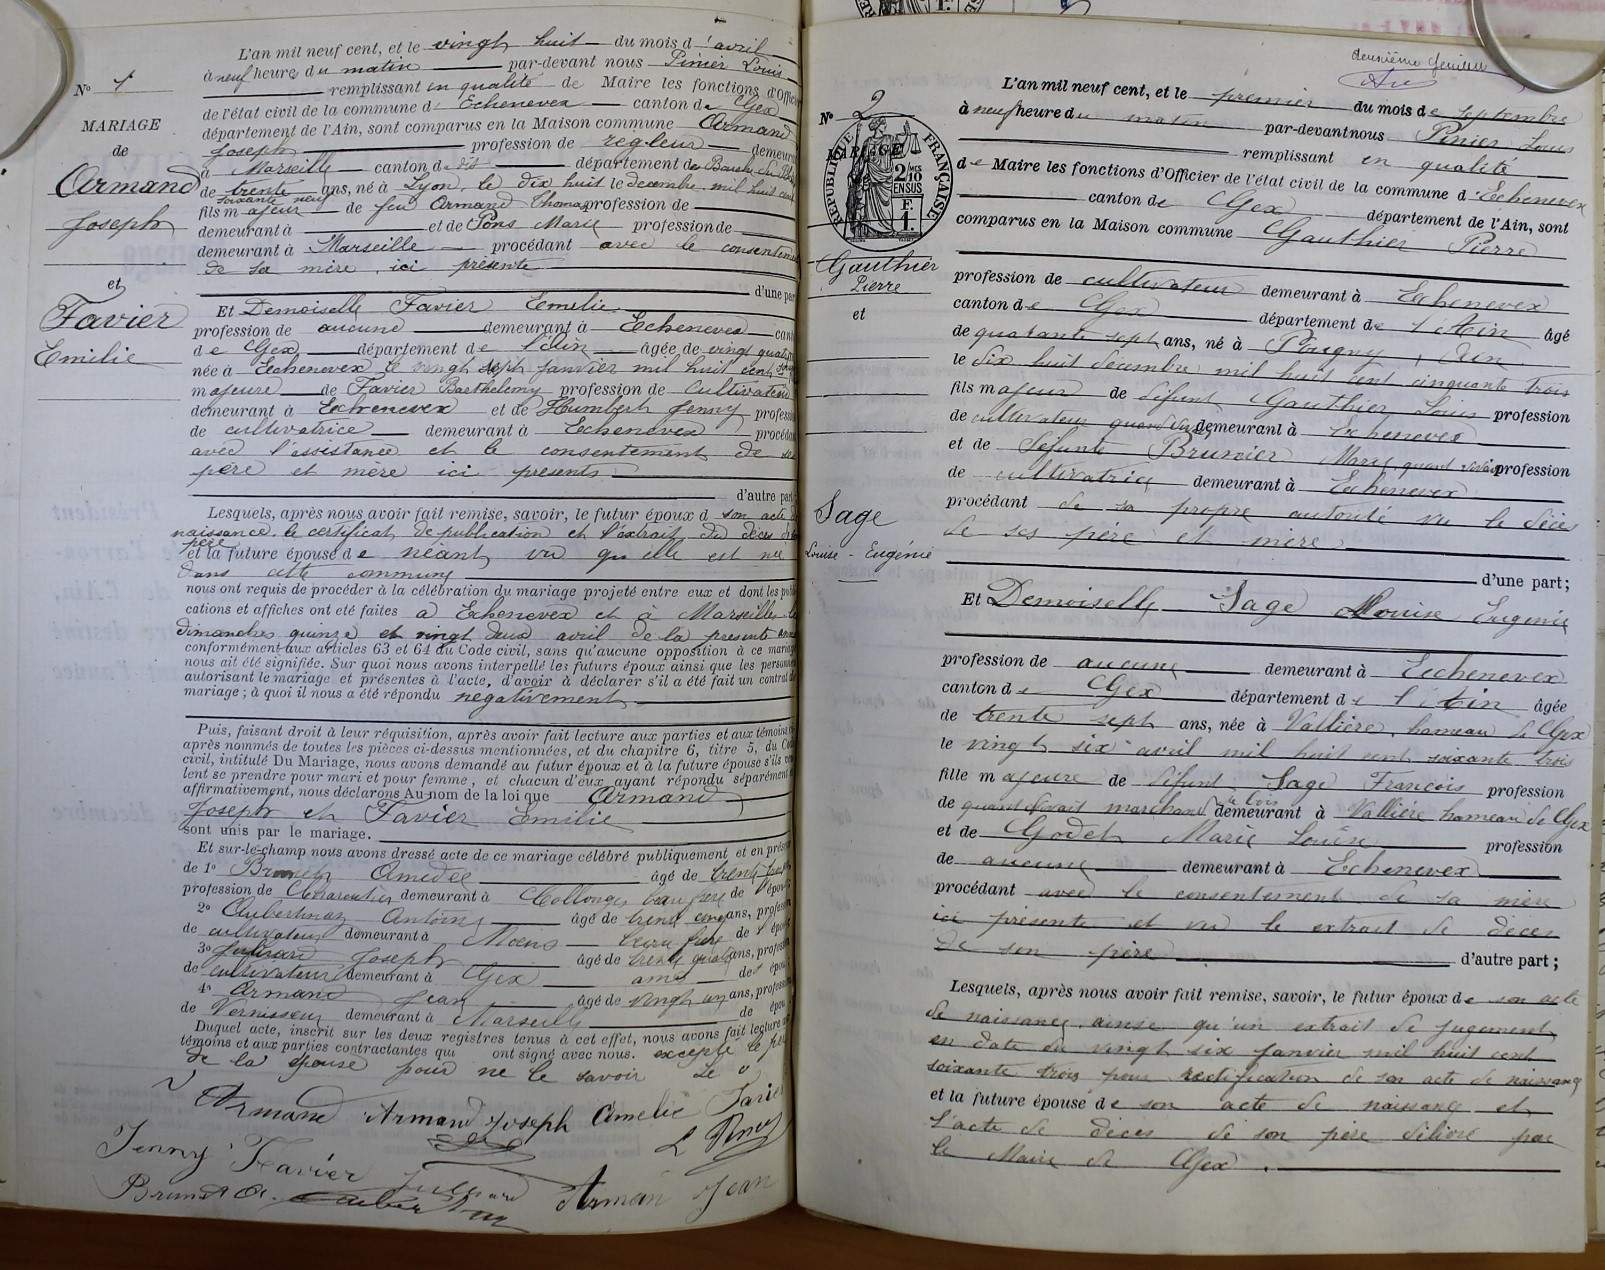 L'an mil neuf cent, et le vingt huit du mois d'avril
à neuf heures du matin par-devant nous Pinier Louis
remplissant en qualité de Maire les fonctions d'Officier
de l'état civil de la commune d'Echenevex canton de Gex
département de l'Ain, sont comparus en la Maison commune Armand
Joseph profession de régleur demeurant
à Marseille canton de dit département des Bouches du
de trente ans, né à Lyon, le dix huit décembre mil huit cent
soixante neuf
fils majeur de feu Armand Thomas profession de
demeurant à et de Pons Marie profession de
demeurant à Marseille procédant avec le consentement
de sa mère, ici présente
d'une part
Et Demoiselle Favier Emelie
profession de aucune demeurant à Echenevex canton
de Gex département de l'Ain âgée de vingt quatre
née à Echenevex le vingt sept janvier mil huit cent
majeure de Favier Barthelemy profession de Cultivateur
demeurant à Echenevex et de Humbert Jenny profession
de cultivatrice demeurant à Echenevex procédant
avec l'assistance et le consentement de ses
père et mère ici présents
d'autre part
Lesquels, après nous avoir fait remise, savoir, le futur époux d son acte de
naissance, le certificat de publication et l'extrait du décès de
père
et la future épouse de néant, vu qu'elle est née
dans cette commune
nous ont requis de procéder à la célébration du mariage projeté entre eux et dont les publi
cations et affiches ont été faites a Echenevex et à Marseille les
dimanches quinze et vingt deux avril de la presente année
conformément aux articles 63 et 64 du Code civil, sans qu'aucune opposition à ce mariage
nous ait été signifiée. Sur quoi nous avons interpellé les futurs époux ainsi que les personnes
autorisant le mariage et présentes à l'acte, d'avoir à déclarer s'il a été fait un contrat de
mariage; à quoi il nous a été répondu negativement
Puis, faisant droit à leur réquisition, après avoir fait lecture aux parties et aux témoins ci
après nommés de toutes les pièces ci-dessus mentionnées, et du chapitre 6, titre 5, du Code
civil, intitulé Du Mariage, nous avons demandé au futur époux et à la future épouse s'ils veu
lent se prendre pour mari et pour femme, et chacun d'eux ayant répondu séparément et
affirmativement, nous déclarons Au nom de la loi que Armand
Joseph et Favier Emilie
sont unis par le mariage.
Et sur-le-champ nous avons dressé acte de ce mariage célébré publiquement et en présence
de 1° Brunet Amedée âgé de trente
profession de Charcutier demeurant à Collonges beau frère de l'épouse
2° Aubertinaz Antoine âgé de trente cinq ans, profession
de cultivateur demeurant à Moens beau frère de l'épouse
3° Joseph âgé de trente quatre ans, profession
de cultivateur demeurant à Gex ami des époux
4° Armand Jean âgé de vingt un ans, profession
de Vernisseur demeurant à Marseille de époux
Duquel acte, inscrit sur les deux registres tenus à cet effet, nous avons fait lecture aux
témoins et aux parties contractantes qui ont signé avec nous. excepté le père
de la épouse pour ne le savoir
Armand Armand Joseph Amelie Favier
L Pinier
Jenny Favier
Brunet A. Arman Jean
N° 1
MARIAGE
de
Armand
Joseph
et
Favier
Emilie
deuxième feuillet
N° 2
MARIAGE
RÉPUBLIQUE FRANÇAISE
2 MES
10
EN SUS
F.
1.
Gauthier
Pierre
et
Sage
Louise-Eugénie
L'an mil neuf cent, et le premier du mois de septembre
à neuf heure du matin par-devant nous Pinier Louis
remplissant en qualité
de Maire les fonctions d'Officier de l'état civil de la commune d'Echenevex
canton de Gex département de l'Ain, sont
comparus en la Maison commune Gauthier Pierre
profession de cultivateur demeurant à Echenevex
canton de Gex département de l'Ain âgé
de quatante sept ans, né à Pougny, Ain
le dix huit décembre mil huit cent cinquante trois
fils majeur de défunt Gauthier Louis profession
de cultivateur quand vivait demeurant à Echenevex
et de défunte Brunier Marie quand vivait profession
de cultivatrice demeurant à Echenevex
procédant de sa propre autorité vu le décès
de ses père et mère
d'une part;
Et Demoiselle Sage Louise Eugénie
profession de aucune demeurant à Echenevex
canton de Gex département de l'Ain âgée
de trente sept ans, née à Vallière, hameau de Gex
le vingt six avril mil huit cent soixante trois
fille majeure de défunt Sage François profession
de quand vivait marchand de bois demeurant à Vallière hameau de Gex
et de Godet Marie Louise profession
de aucune demeurant à Echenevex
procédant avec le consentement de sa mère
ici présente et vu le extrait de décès
de son père d'autre part;
Lesquels, après nous avoir fait remise, savoir, le futur époux de son acte
de naissance, ainsi qu'un extrait de jugement
en date du vingt six janvier mil huit cent
soixante trois pour rectification de son acte de naissance
et la future épouse de son acte de naissance et
l'acte de décès de son père délivré par
le Maire de Gex.